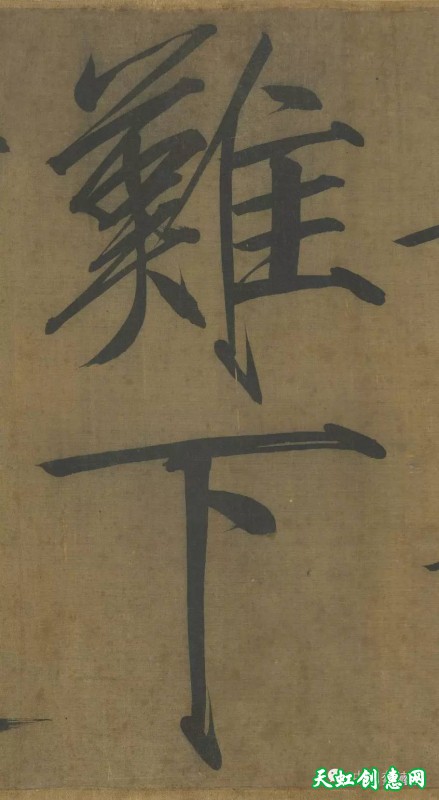 難下
天虹创意网